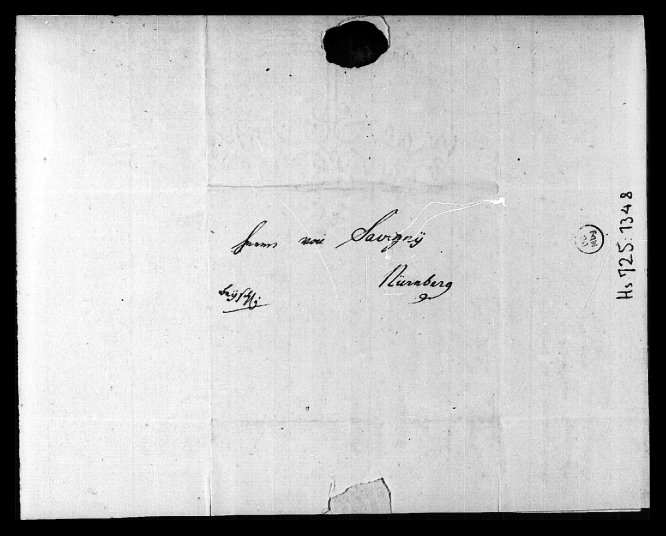 Herrn von Savigny
Nürnberg
Hs 725. 1348